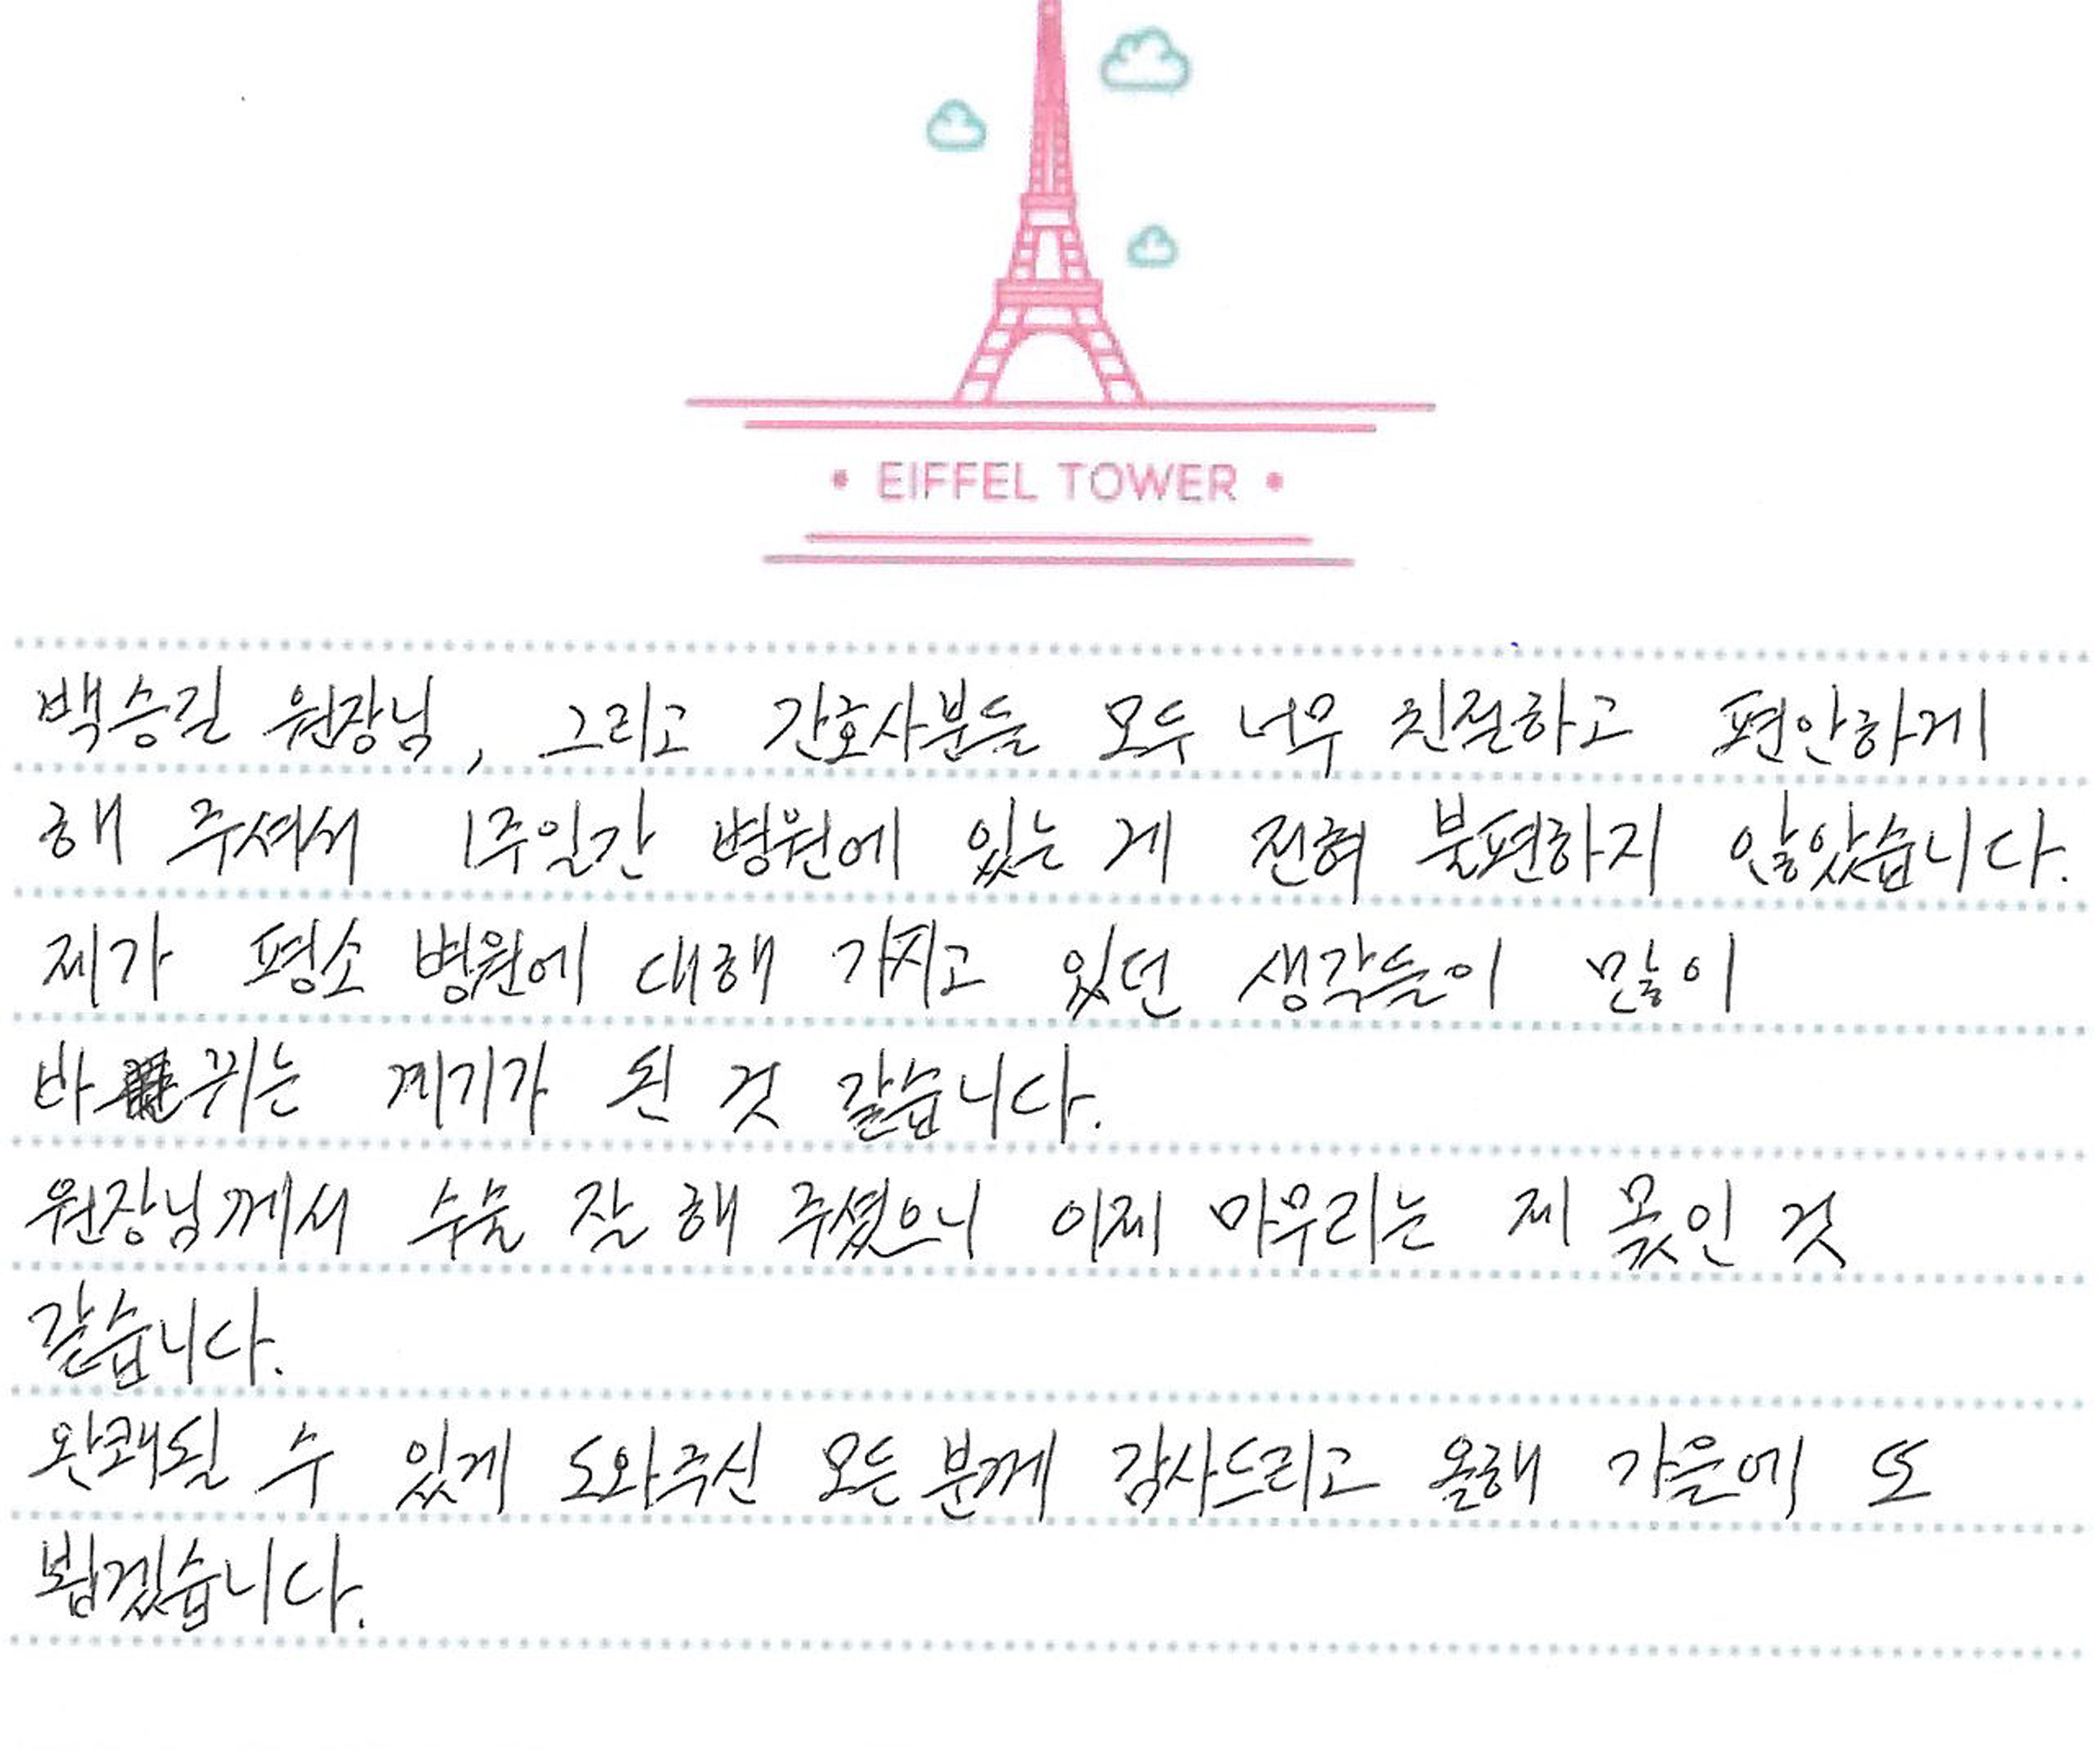 • EIFFEL TOWER •
백승길 원장님, 그리고 간호사분들 모두 너무 친절하고 편안하게
해 주셔서 1주일간 병원에 있는 게 전혀 불편하지 않았습니다.
제가 평소 병원에 대해 가지고 있던 생각들이 많이
바뀌는 계기가 된 것 같습니다.
원장님께서 수술 잘 해 주셨으니 이제 마무리는 제 몫인 것
같습니다.
완쾌될 수 있게 도와주신 모든 분께 감사드리고 올해 가을에 또
뵙겠습니다.